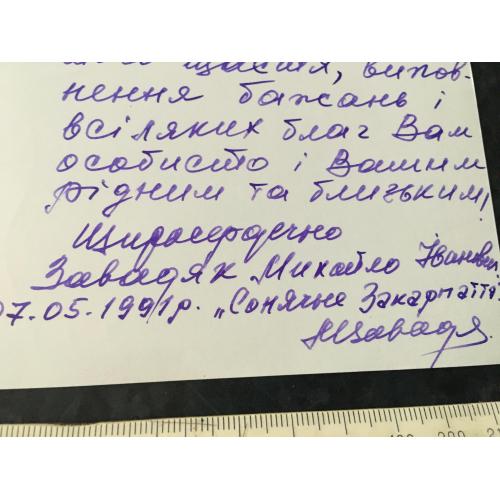 щастя, випов-
нення бажань і
всіляких благ Вам
особисто і Вашим
рідним та близьким!
Щиросердечно
Завадяк Михайло Іванович
07.05.1991р. „Сонячне Закарпаття"